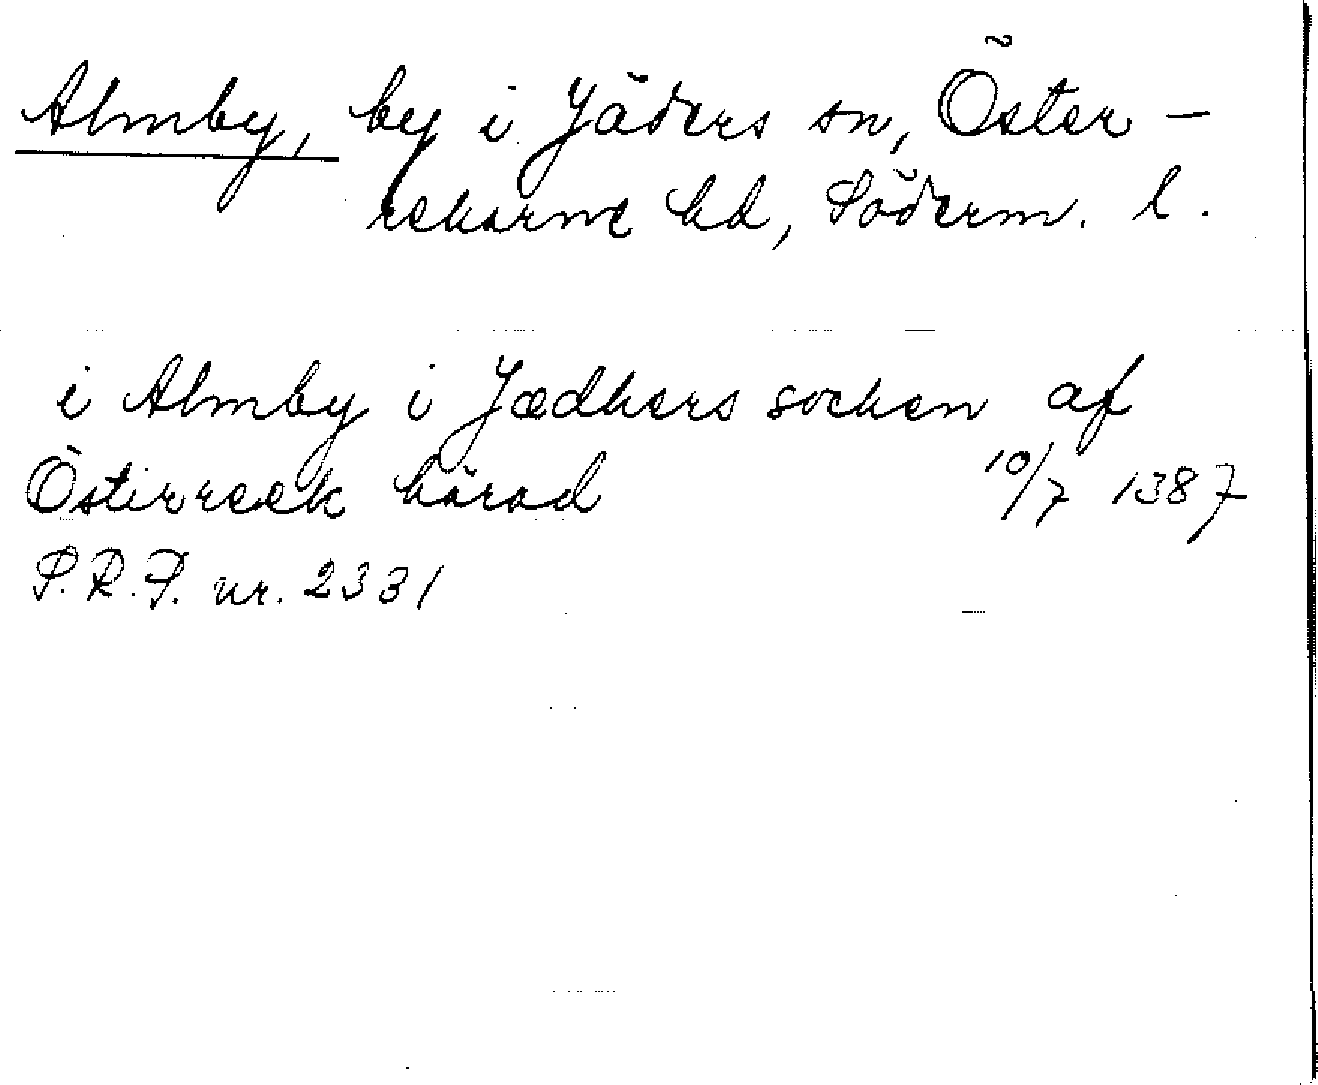 Almby, by i Jäders sn, Öster-
rekarne hd, Söderm. l.
i Almby i Jædhers socken af
Österreek härad 10/7 1387
S.R.P. nr. 2331